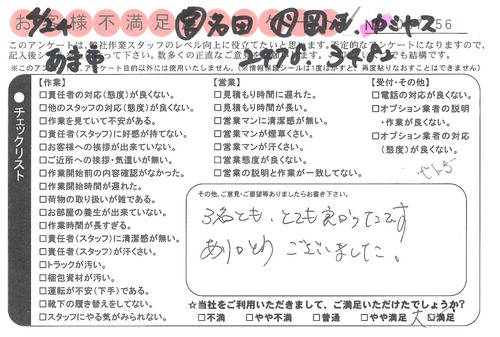 お客様不満足
56
このアンケートは、弊社作業スタッフのレベル向上に役立てたいと思います。不定的なアンケートになりますので、
【作業】
□責任者の対応(態度)が良くない。
□他のスタッフの対応(態度)が良くない。
□作業を見ていて不安がある。
□責任者(スタッフ)に好感が持てない。
□お客様への挨拶が出来ていない。
□ご近所への挨拶・気遣いが無い。
□作業開始前の内容確認がなかった。
□作業開始時間が遅れた。
□荷物の取り扱いが雑である。
□お部屋の養生が出来ていない。
□作業時間が長すぎる。
□責任者(スタッフ)に清潔感が無い。
□責任者(スタッフ)が汗くさい。
□トラックが汚い。
□梱包資材が汚い。
□運転が不安(下手)である。
□靴下の履き替えをしてない。
□スタッフにやる気がみられない。
【営業】
□見積もり時間に遅れた。
□見積もり時間が長い。
□営業マンに清潔感が無い。
□営業マンが煙草くさい。
□営業マンが汗くさい。
□営業態度が良くない。
□営業の説明と作業が一致してない。
【受付・その他】
□電話の対応が良くない。
□オプション業者の説明
・作業が良くない。
□オプション業者の対応
(態度)が良くない。
●チェックリスト
その他、ご意見・ご要望等ありましたらお書き下さい。
3名とも、とても良かったです
ありがとうございました。
☆当社をご利用いただきまして、ご満足いただけたでしょうか?
□不満 □やや不満 □普通 □やや満足 大 □満足